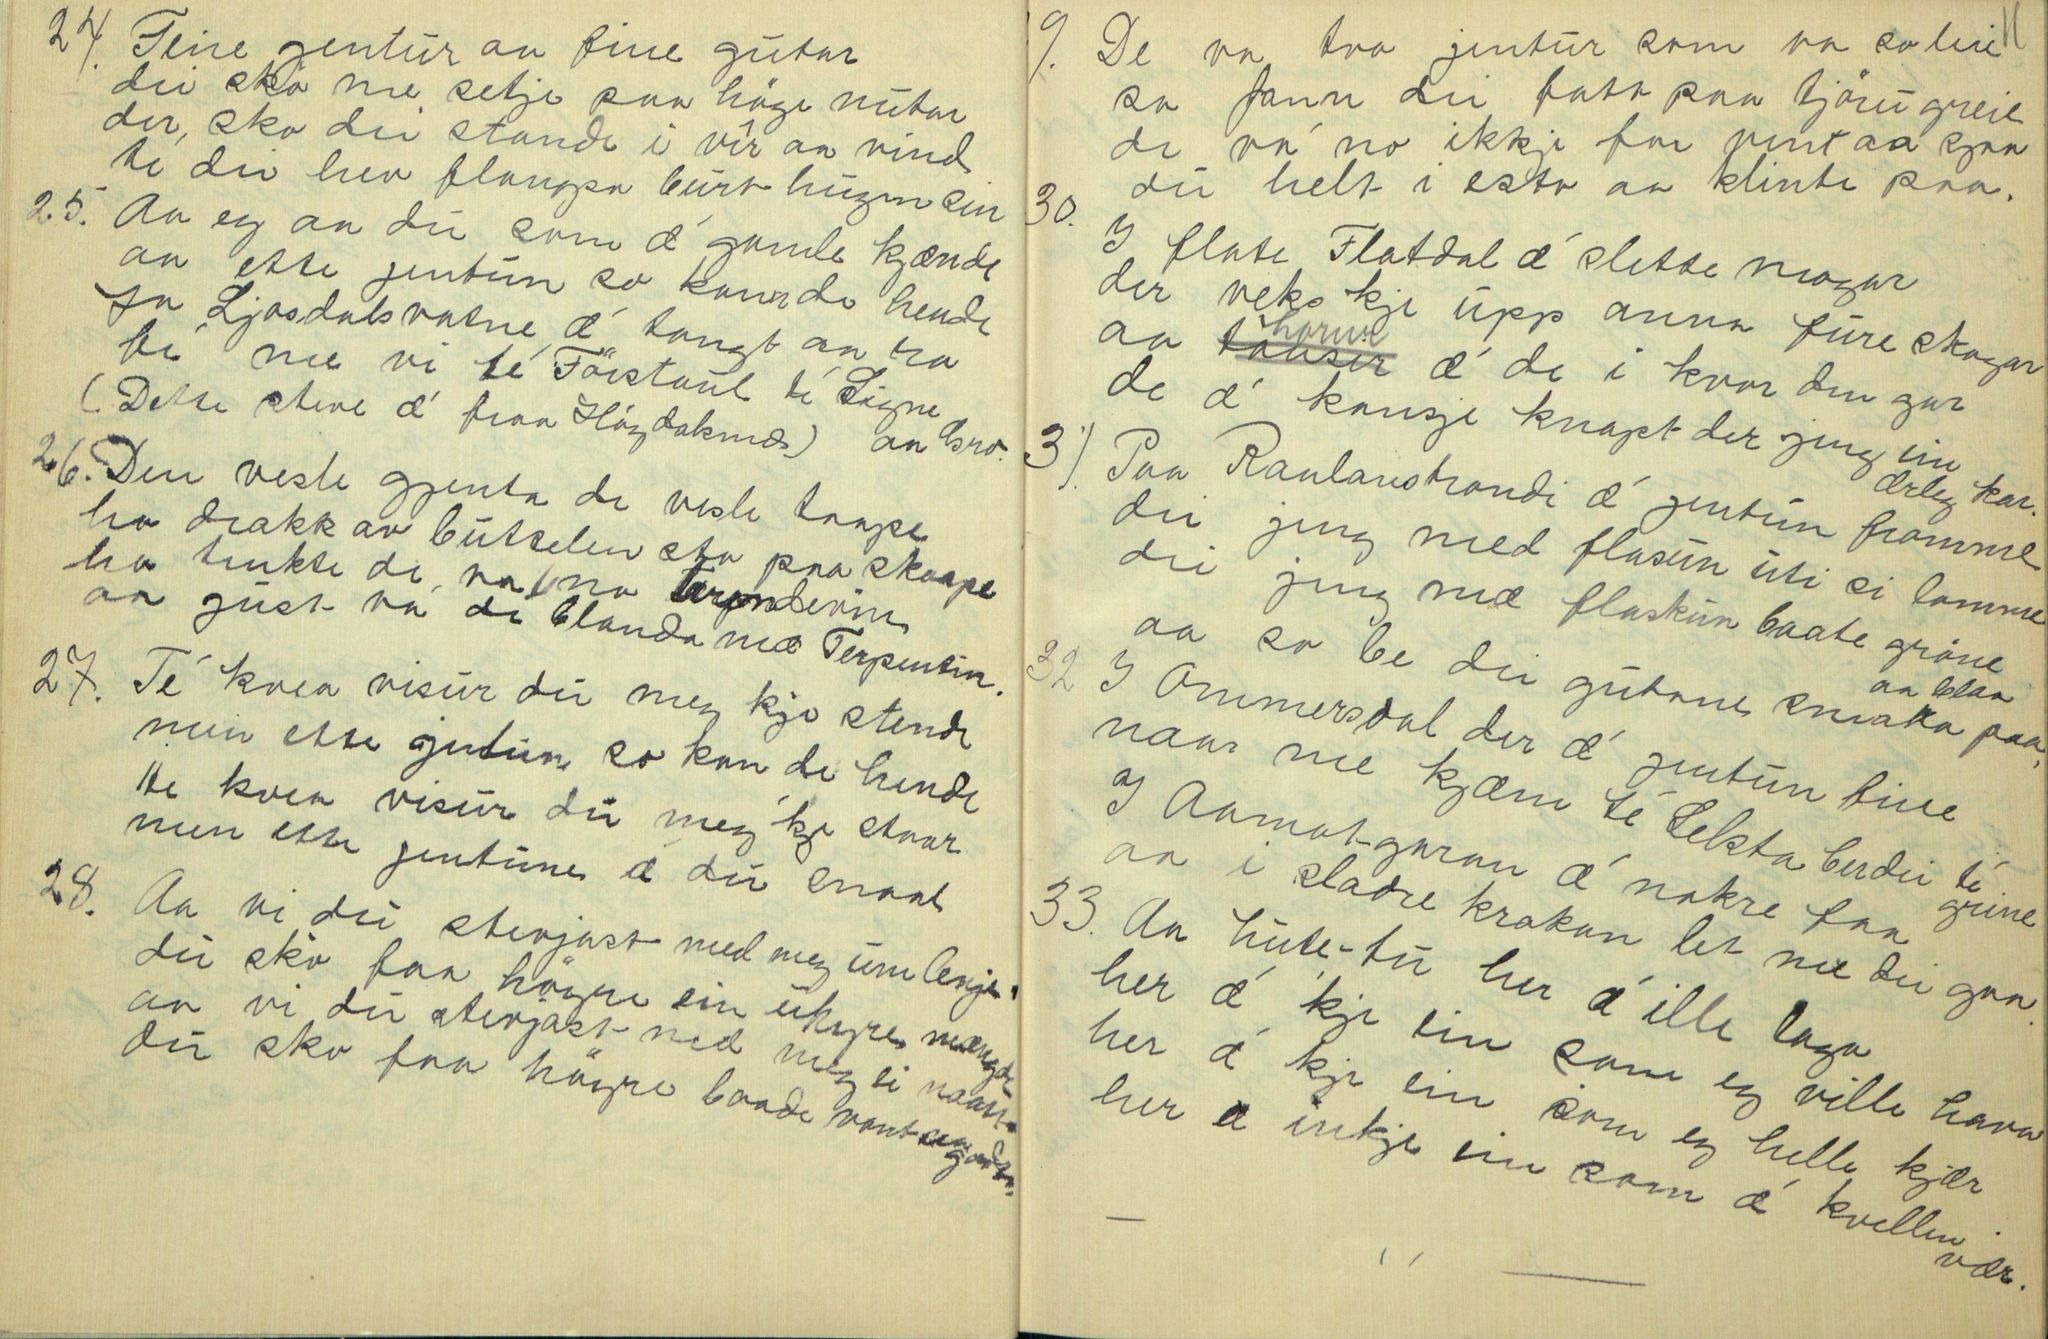 24. Fine gentur aa fine gutar
dei sko me setje paa höge nutar
der sko dei stande i vêr aa vind
té dei hev flangsa burt hugen sin
25. Aa eg aa du som æ' gamle kjænde
aa ette jentun so kann de hende
fra Ljosdalsvatne æ' langt aa ro
bé me vi té Föistaul té Signe
aa bro.
(Dette steve æ' fraa Högdaknes)
26. Den vesle gjenta de vesle taape
ho drakk av buttelen sto paa skaape
ho tenkte de va no
aa just va' de blanda mæ Terpentin.
27. Té kvea visur du meg kje stende
men ette jentun so kan de hende
te kvea visur du meg kje staar
men ette jentune æ' du snaal
28. Aa vi du stevjast med meg um lenje
du sko faa högre ein uhyre mængde
aa vi du stevjast med meg ei naatt
du sko faa högre baade vont aa godt.
11
9. De va tvo jentur som va so lei
so fann dei fata paa tjöru greie
de va' no ikkje for vent aa sjaa
du helt i esto aa klinte paa.
30.
I flate Flatdal æ' slette mogar
der veks kje upp anna fureskogar
aa tauser horve æ' de i kvar den gar
de æ' kansje knapt der jeng ein
ærleg kar.
31. Paa Raulandstrandi æ' jentun framme
dei jeng med flasun uti si lomme
dei jeng mæ flaskun baate gröne
aa blaa
aa so be dei gutane smaka paa.
32 I Ammersdal der æ' jentun fine
naar me kjæm té Selsta ber dei té
grine
I Aamot-garan æ' nokre faa
aa i sladre krokan let me dei gaa.
33. Aa hute-tu her æ' ille laga
her æ' kje ein som eg ville hava
her æ' kje ein som eg helle kjær
her æ inkje ein som æ' kvellen
vær.